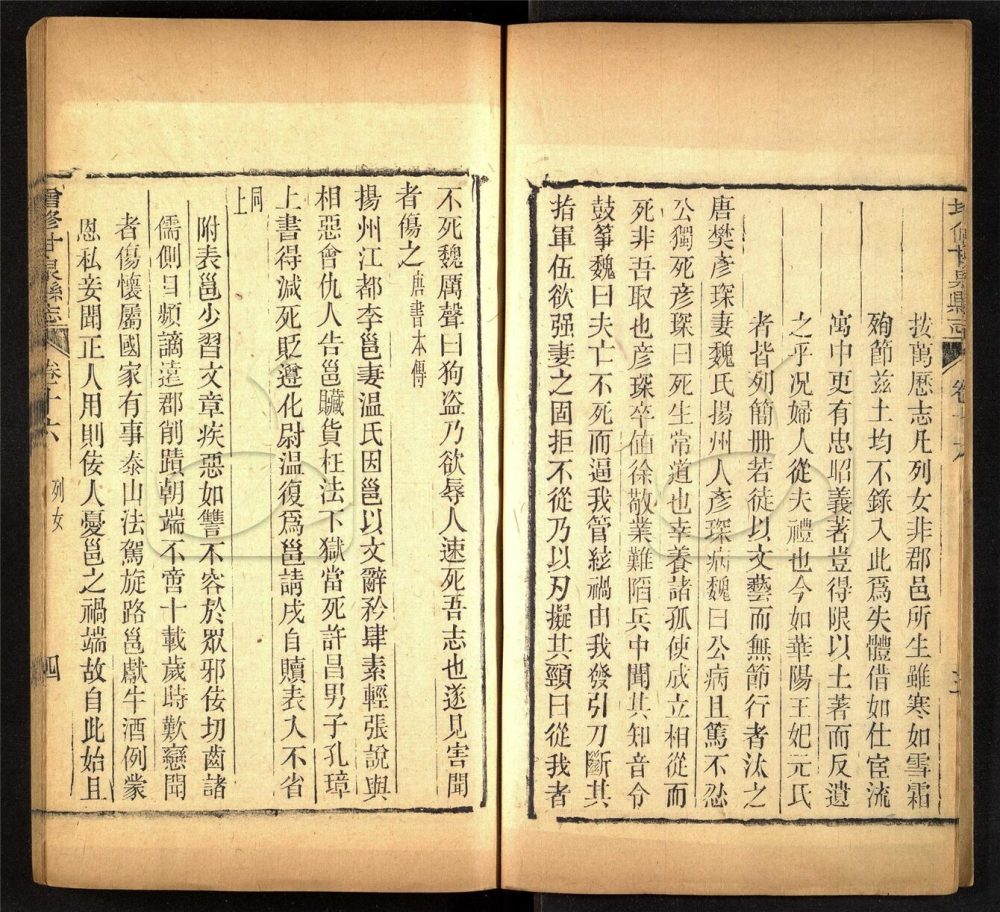 增修甘泉縣志 卷十六
按萬厯志凡列女非郡邑所生雖寒如雪霜
殉節兹土均不錄入此爲失體借如仕宦流
寓中更有忠昭義著豈得限以土著而反遺
之乎况婦人從夫禮也今如華陽王妃元氏
者皆列簡冊若徒以文藝而無節行者汰之
唐樊彥琛妻魏氏揚州人彥琛病魏曰公病且篤不忍
公獨死彥琛曰死生常道也幸養諸孤使成立相從而
死非吾取也彥琛卒値徐敬業難陷兵中聞其知音令
鼓箏魏曰夫亡不死而逼我管絃禍由我發引刀斷其
指軍伍欲强妻之固拒不從乃以刃擬其頸曰從我者
不死魏厲聲曰狗盜乃欲辱人速死吾志也遂見害聞
者傷之唐書本傳
揚州江都李邕妻温氏因邕以文辭矜肆素輕張說與
相惡會仇人告邕贓貨枉法下獄當死許昌男子孔璋
上書得減死貶遵化尉温復爲邕請戍自贖表入不省
同上
附表邕少習文章疾惡如讐不容於眾邪佞切齒諸
儒側目頻謫遠郡削蹟朝端不啻十載歲時歎戀聞
者傷懷屬國家有事泰山法駕旋路邕獻牛酒例蒙
恩私妾聞正人用則佞人憂邕之禍端故自此始且
增修甘泉縣志 卷十六 列女 四